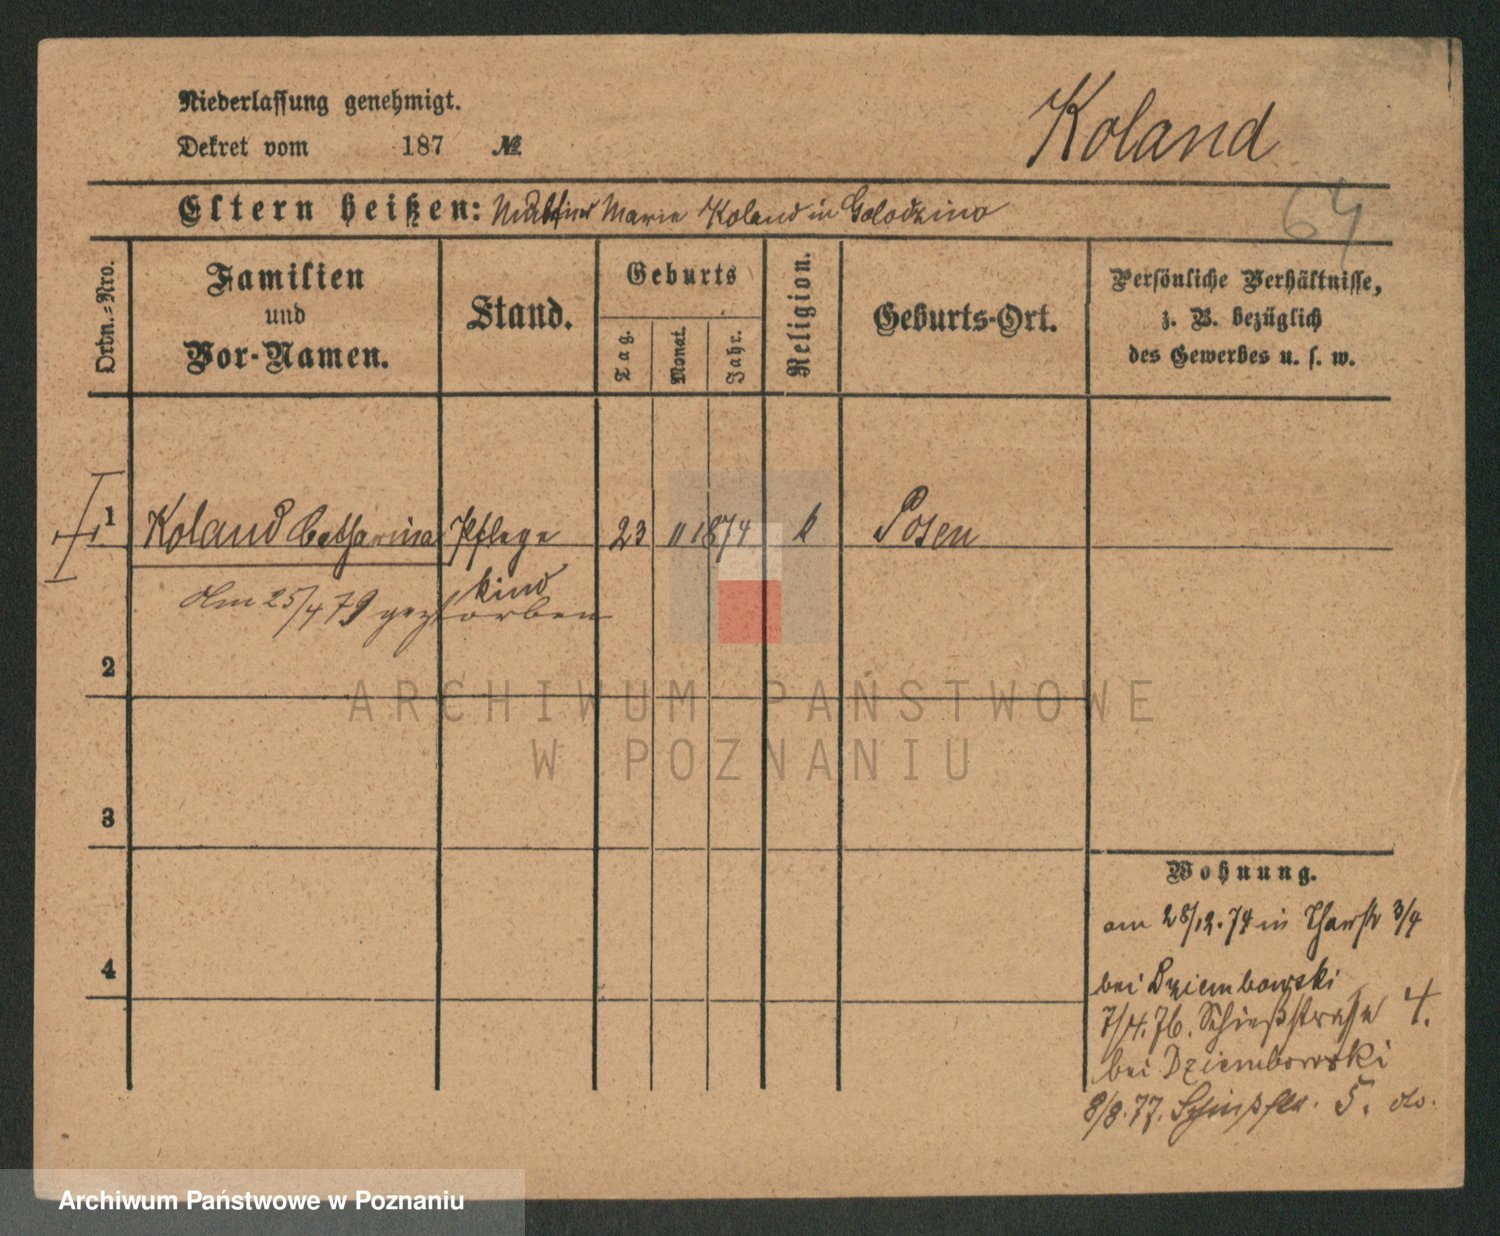 Niederlassung genehmigt.
Dekret vom 187 №
Koland
Eltern heißen: Marie Koland in Golodzino
64
Ordn.-Nro.
Familien
und
Vor-Namen.
Stand.
Geburts
Tag.
Monat.
Jahr.
Religion.
Geburts-Ort.
Persönliche Verhältnisse,
z. B. bezüglich
des Gewerbes u. s. w.
1 Koland Catharina Pflege 23 11 1874 k Posen
kind
Am 25/4 79 gestorben
2
3
4
Wohnung.
am 28/12.74 in 3/4
bei Dziembowski
7/4.76. Schießstrasse 4.
bei Dziembowski
8/8.77. Schießstr. 5. do.
ARCHIWUM PAŃSTWOWE
W POZNANIU
Archiwum Państwowe w Poznaniu